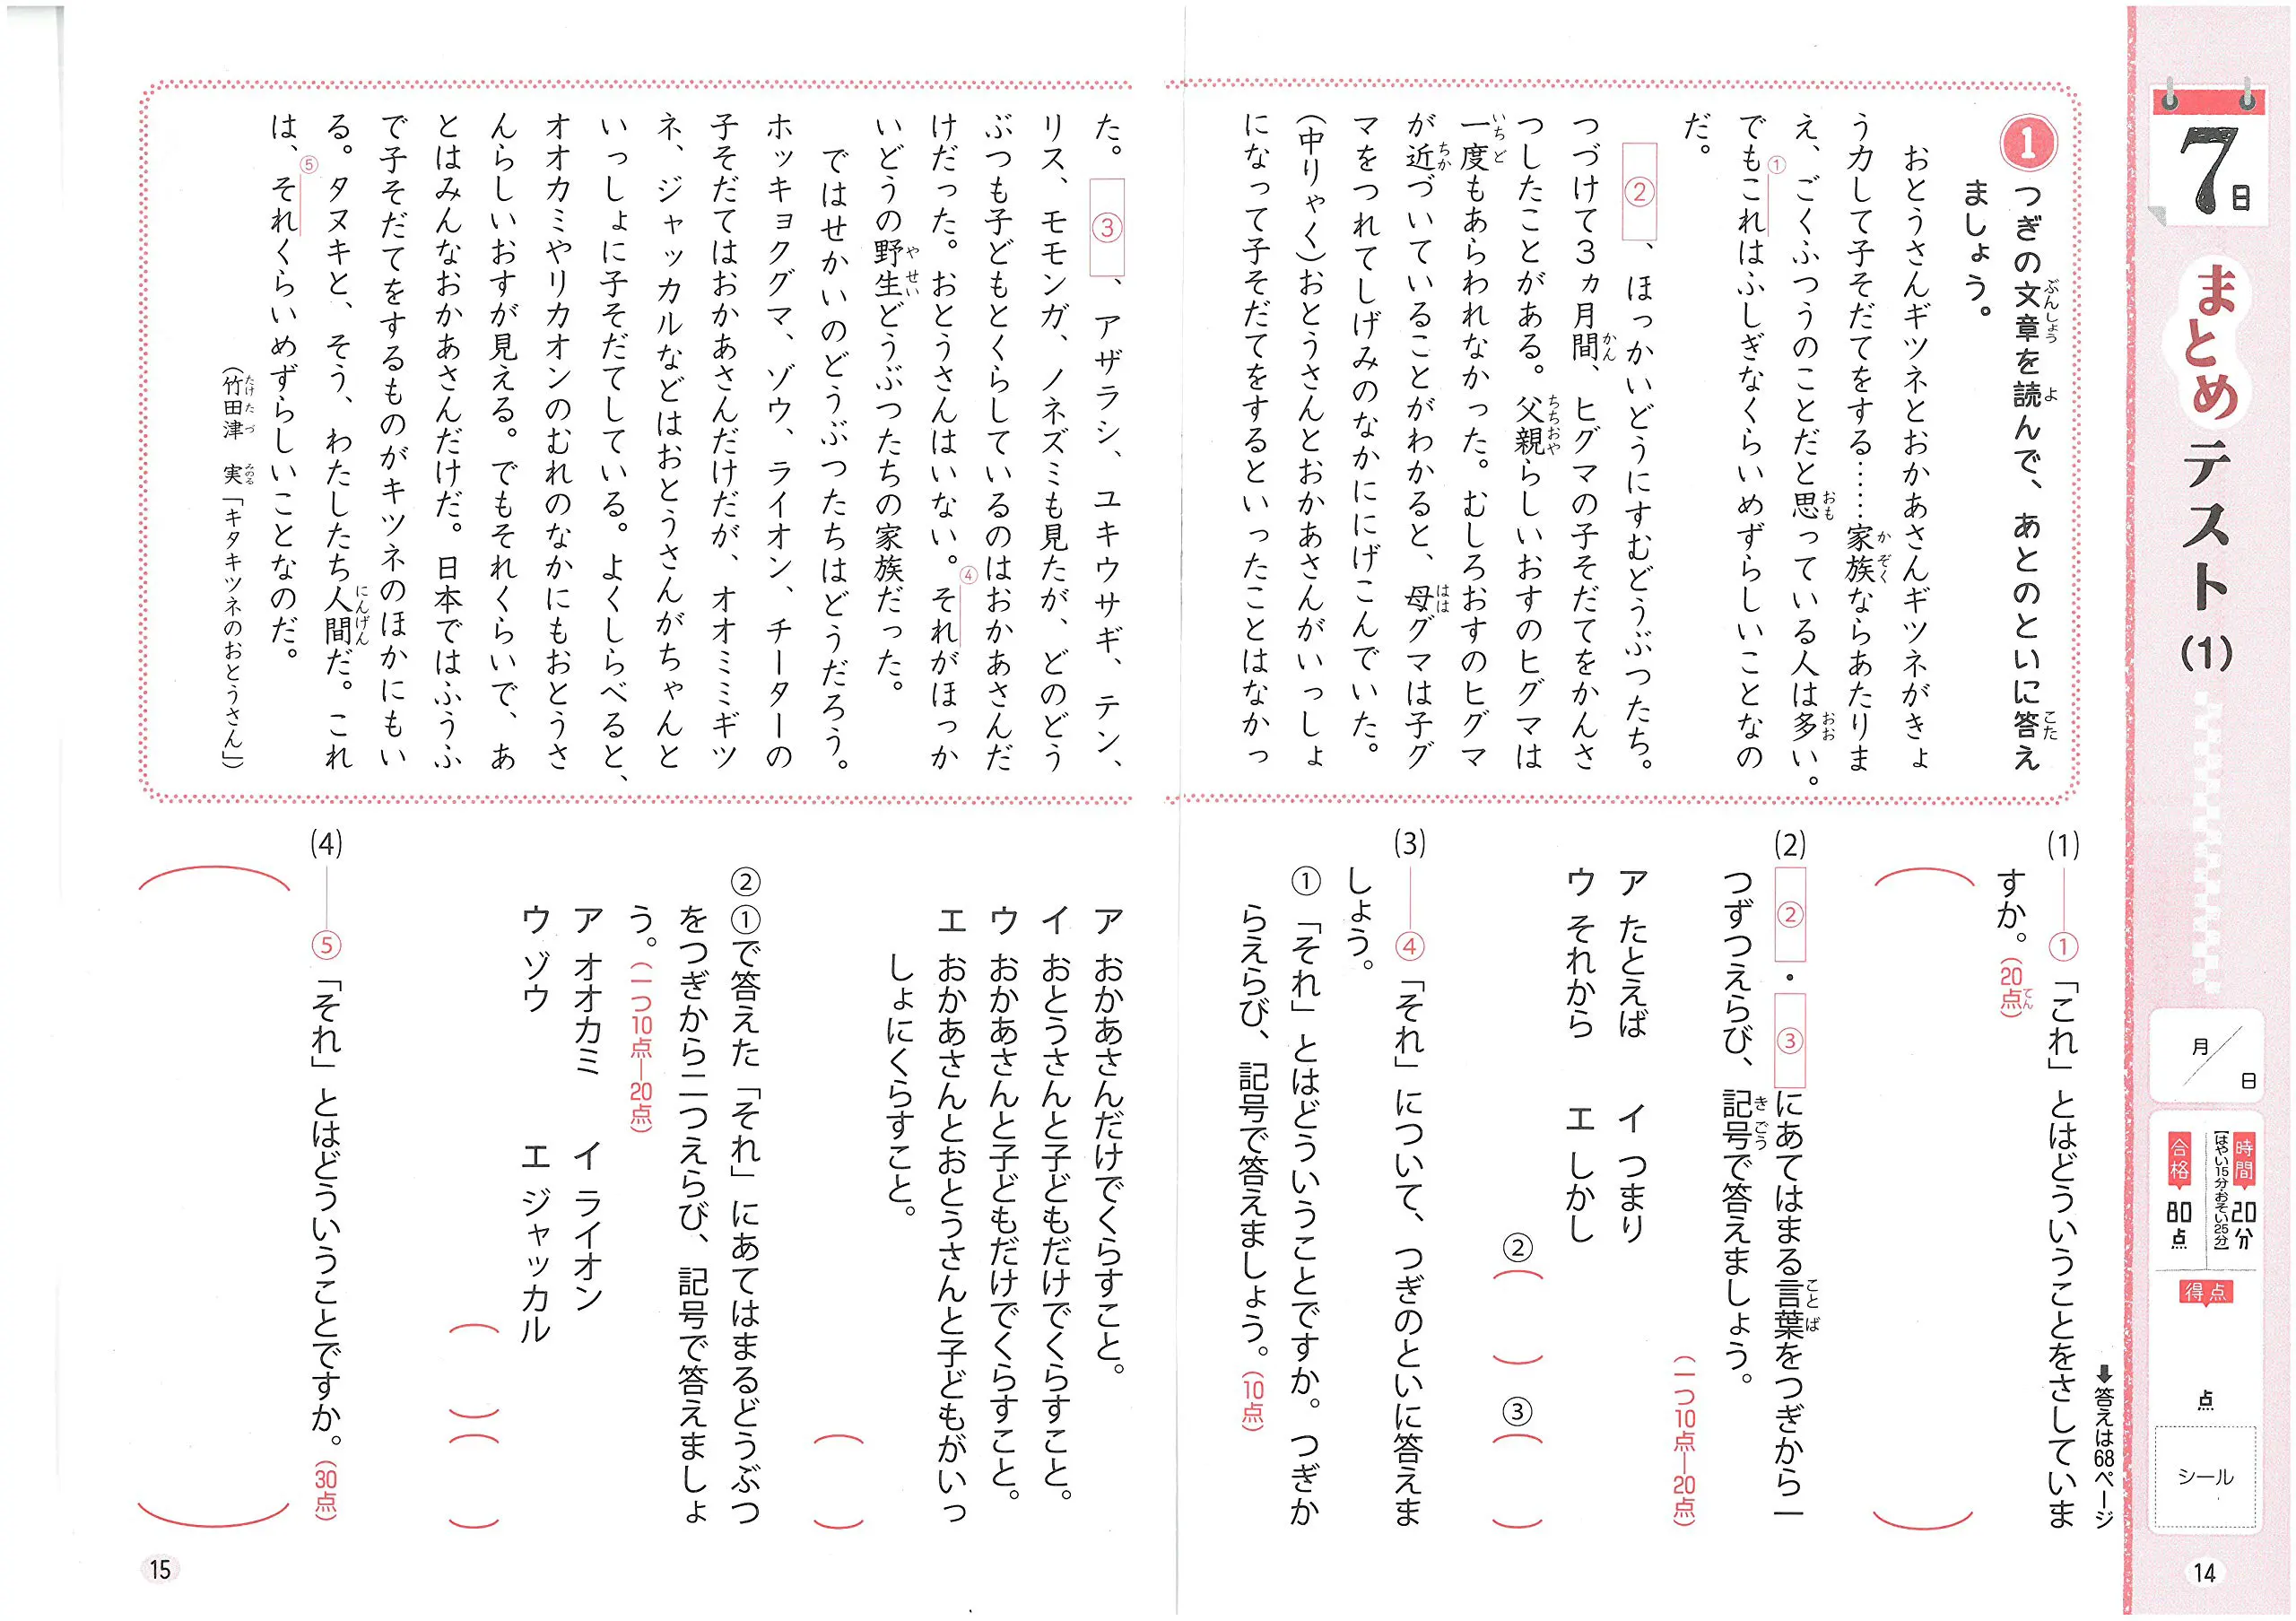 7日
まとめテスト(1)
月/日
時間 20分
【はやい15分・おそい25分】
合格 80点
得点
点
シール
14
➡答えは68ページ
1 つぎの文章を読んで、あとのといに答え
ましょう。
おとうさんギツネとおかあさんギツネがきょ
う力して子そだてをする……家族ならあたりま
え、ごくふつうのことだと思っている人は多い。
でも①これはふしぎなくらいめずらしいことなの
だ。
②、ほっかいどうにすむどうぶつたち。
つづけて3ヵ月間、ヒグマの子そだてをかんさ
つしたことがある。父親らしいおすのヒグマは
一度もあらわれなかった。むしろおすのヒグマ
が近づいていることがわかると、母グマは子グ
マをつれてしげみのなかににげこんでいた。
(中りゃく)おとうさんとおかあさんがいっしょ
になって子そだてをするといったことはなかっ
た。③、アザラシ、ユキウサギ、テン、
リス、モモンガ、ノネズミも見たが、どのどう
ぶつも子どもとくらしているのはおかあさんだ
けだった。おとうさんはいない。④それがほっか
いどうの野生どうぶつたちの家族だった。
ではせかいのどうぶつたちはどうだろう。
ホッキョクグマ、ゾウ、ライオン、チーターの
子そだてはおかあさんだけだが、オオミミギツ
ネ、ジャッカルなどはおとうさんがちゃんと
いっしょに子そだてしている。よくしらべると、
オオカミやリカオンのむれのなかにもおとうさ
んらしいおすが見える。でもそれくらいで、あ
とはみんなおかあさんだけだ。日本ではふうふ
で子そだてをするものがキツネのほかにもい
る。タヌキと、そう、わたしたち人間だ。これ
は、⑤それくらいめずらしいことなのだ。
(竹田津 実「キタキツネのおとうさん」)
(1)――①「これ」とはどういうことをさしていま
すか。(20点)
(2) ②・③にあてはまる言葉をつぎから一
つずつえらび、記号で答えましょう。
(一つ10点―20点)
ア たとえば イ つまり
ウ それから エ しかし
②( ) ③( )
(3)――④「それ」について、つぎのといに答えま
しょう。
①「それ」とはどういうことですか。つぎか
らえらび、記号で答えましょう。(10点)
ア おかあさんだけでくらすこと。
イ おとうさんと子どもだけでくらすこと。
ウ おかあさんと子どもだけでくらすこと。
エ おかあさんとおとうさんと子どもがいっ
しょにくらすこと。
( )
②①で答えた「それ」にあてはまるどうぶつ
をつぎから二つえらび、記号で答えましょ
う。(一つ10点―20点)
ア オオカミ イ ライオン
ウ ゾウ エ ジャッカル
( )( )
(4)――⑤「それ」とはどういうことですか。(30点)
15